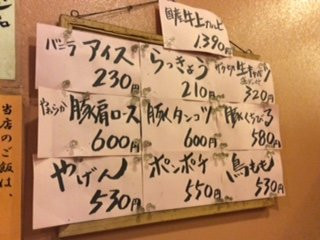 国産牛上カルビ
1,390円
バニラ アイス
230円
らっきょう
210円
320円
やわらか 豚肩ロース
600円
豚タンコツ
600円
豚くちびる
580円
やげん
530円
ボンボチ
550円
鳥もも
530円
当店のご飯は、